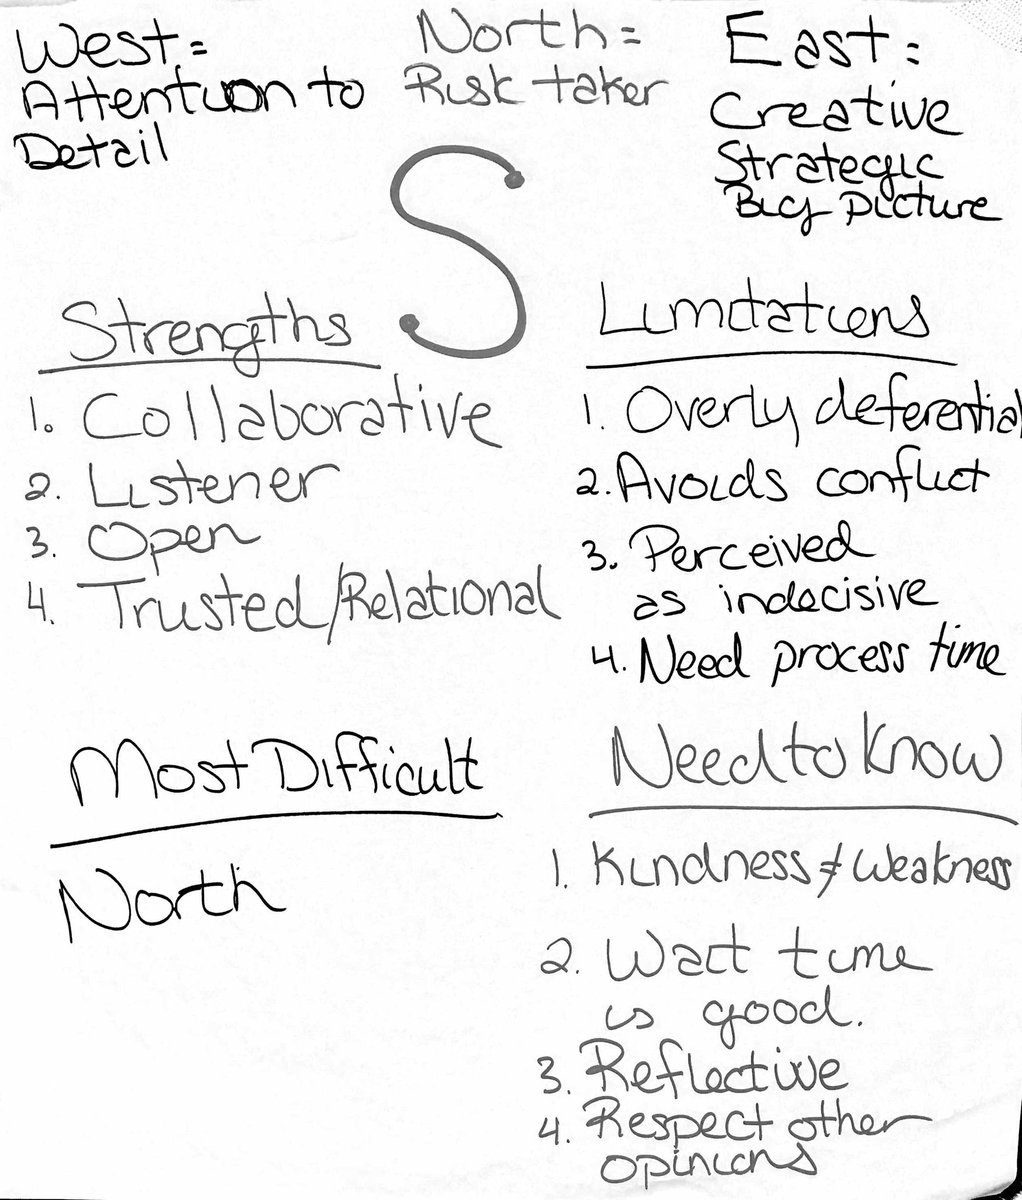 West=
Attention to
Detail
North=
Risk taker
East:
Creative
Strategic
Big picture
S
Strengths
1. Collaborative
2. Listener
3. Open
4. Trusted/Relational
Limitations
1. Overly deferential
2. Avoids conflict
3. Perceived
as indecisive
4. Need process time
Most Difficult
North
Need to know
1. Kindness ≠ weakness
2. Wait time
is good.
3. Reflective
4. Respect other
opinions